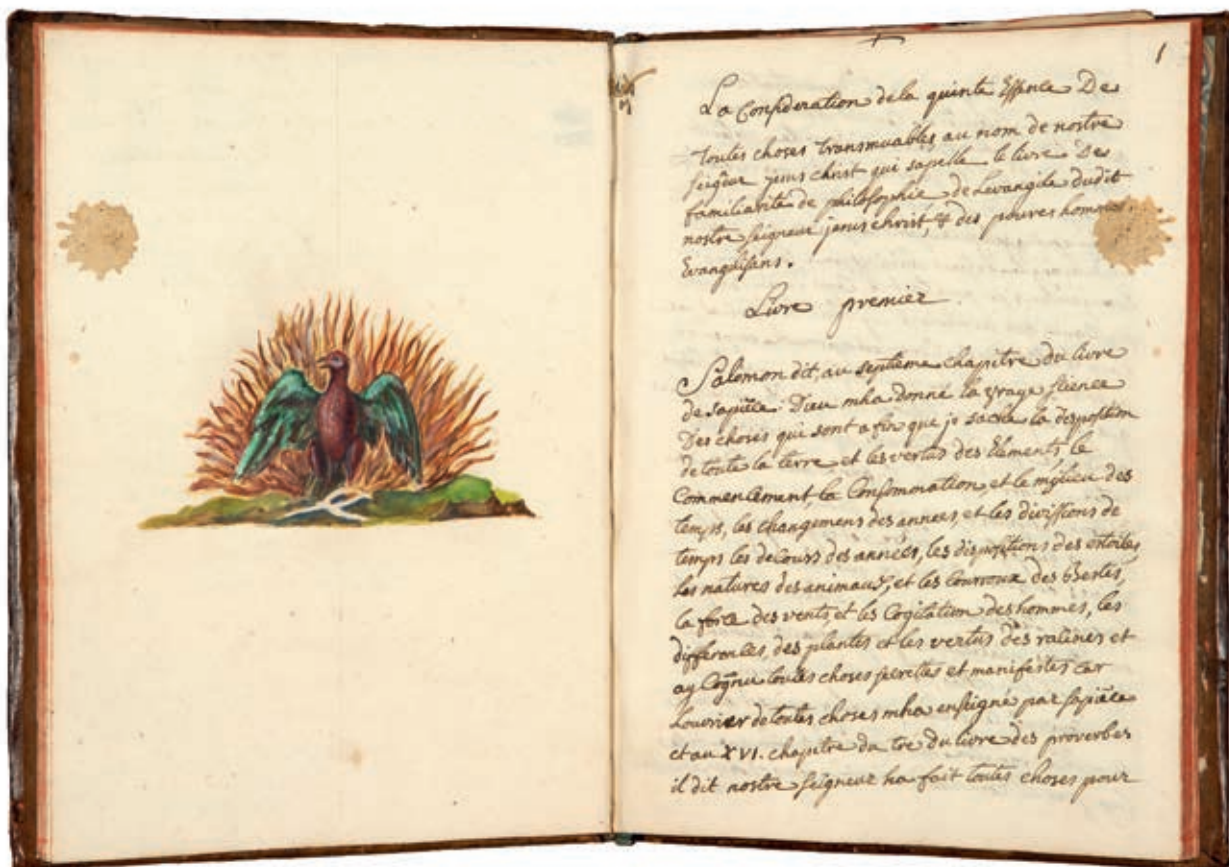 1
La Consideration de la quinte Essence De
toutes choses transmuables au nom de nostre
seigneur jesus christ qui sapelle le livre Des
familiarite de philosophie de Levangile dudit
nostre seigneur jesus christ, & des pouvres hommes
Evangelisans.
Livre premier
Salomon dit, au septieme chapitre du livre
de sapiẽce. Dieu mha donné la vraye science
Des choses qui sont a fin que je sache la disposition
de toute la terre et les vertus des Elements le
Commencement, la Consommation, et le mylieu des
temps, les changemens des annees, et les divissions de
temps les decours des années, les dispositions des estoiles,
les natures des animaux, et les Courroux des Bestes,
la force des vents, et les Cogitation des hommes, les
differences des plantes et les vertus des racines et
ay Cognu toutes choses secrettes et manifestes car
Louvrier de toutes choses mha enseigné par sapiẽce
et au XVI. chapitre du livre des proverbes
il dit nostre seigneur ha fait toutes choses pour